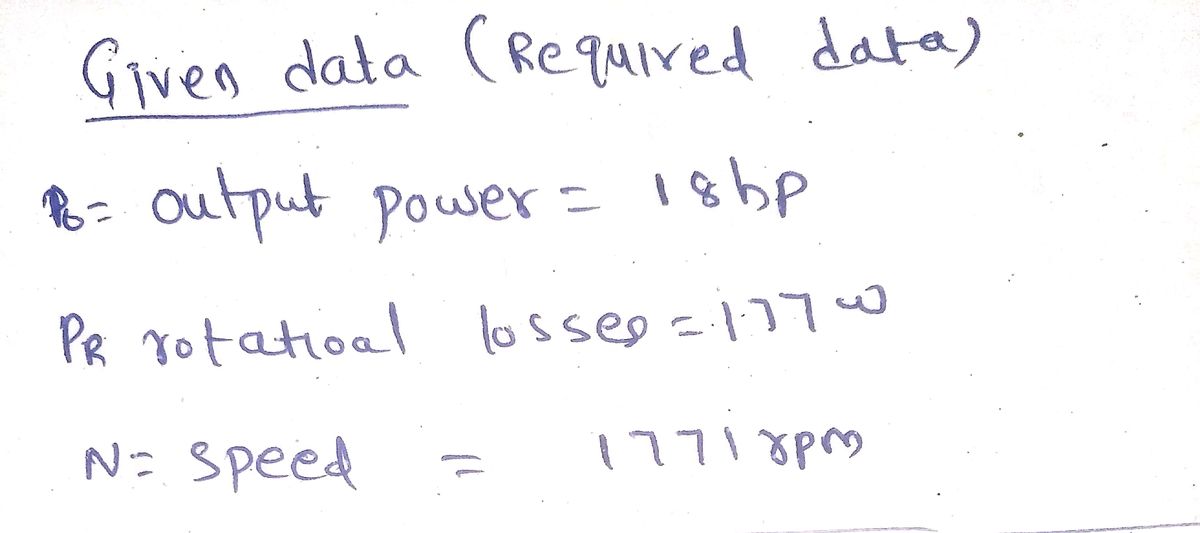 Given data (Required data)
Po= output power = 18hp
PR rotatioal losses = 177 w
N= speed = 1771 rpm